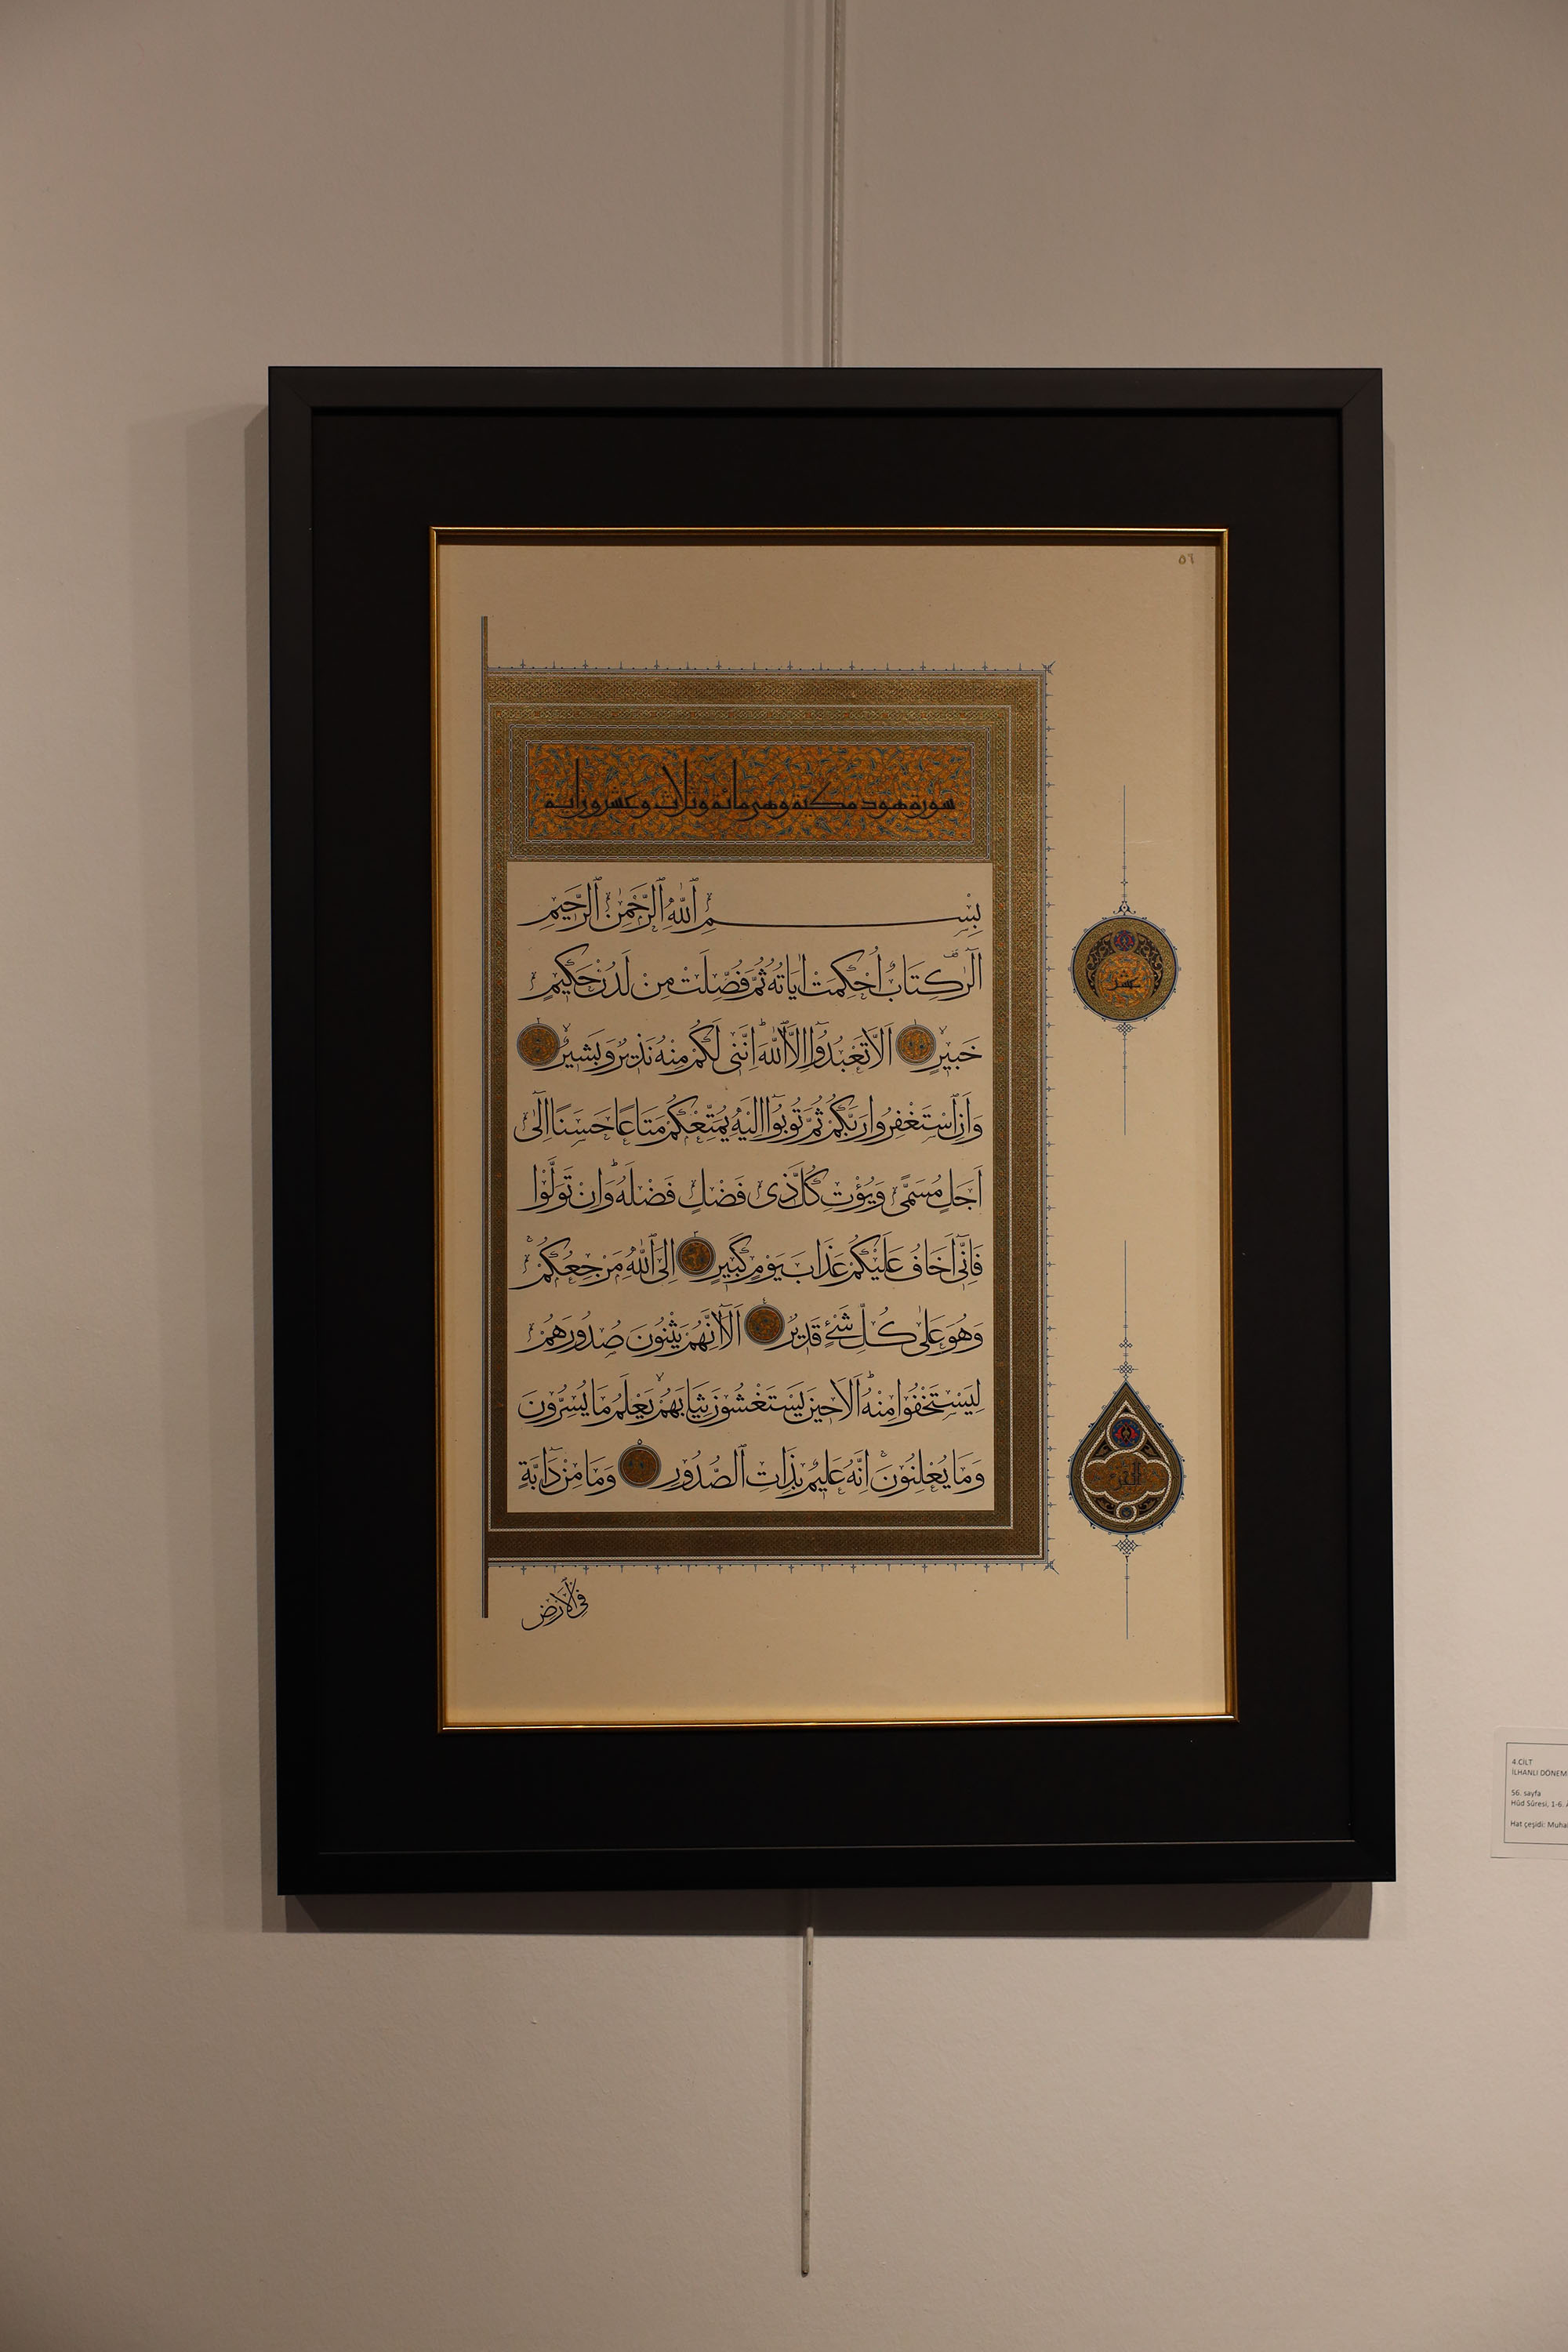 ٥٦
سورة هود مكية وهى مائة وثلاث وعشرون اية
بِسْمِ ٱللّٰهِ ٱلرَّحْمٰنِ ٱلرَّحِيمِ
الٓرٰ كِتَابٌ اُحْكِمَتْ اٰيَاتُهُ ثُمَّ فُصِّلَتْ مِنْ لَدُنْ حَكِيمٍ
خَبِيرٍ اَلَّا تَعْبُدُٓوا اِلَّا ٱللّٰهَ اِنَّنِى لَكُمْ مِنْهُ نَذِيرٌ وَبَشِيرٌ
وَاَنِ ٱسْتَغْفِرُوا رَبَّكُمْ ثُمَّ تُوبُٓوا اِلَيْهِ يُمَتِّعْكُمْ مَتَاعًا حَسَنًا اِلٰٓى
اَجَلٍ مُسَمًّى وَيُؤْتِ كُلَّ ذِى فَضْلٍ فَضْلَهُ وَاِنْ تَوَلَّوْا
فَاِنِّٓى اَخَافُ عَلَيْكُمْ عَذَابَ يَوْمٍ كَبِيرٍ اِلَى ٱللّٰهِ مَرْجِعُكُمْ
وَهُوَ عَلٰى كُلِّ شَىْءٍ قَدِيرٌ اَلَٓا اِنَّهُمْ يَثْنُونَ صُدُورَهُمْ
لِيَسْتَخْفُوا مِنْهُ اَلَا حِينَ يَسْتَغْشُونَ ثِيَابَهُمْ يَعْلَمُ مَا يُسِرُّونَ
وَمَا يُعْلِنُونَ اِنَّهُ عَلِيمٌ بِذَاتِ ٱلصُّدُورِ وَمَا مِنْ دَٓابَّةٍ
فِى ٱلْاَرْضِ
عشر
4.CİLT
İLHANLI DÖNEM
56. sayfa
Hûd Sûresi, 1-6.
Hat çeşidi: